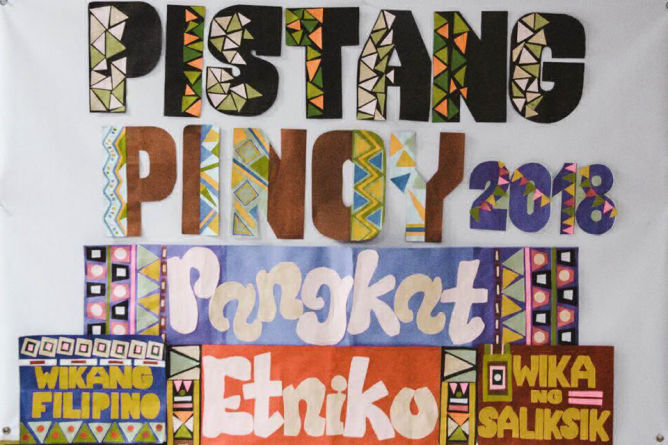 PISTANG
PINOY 2018
Pangkat
Etniko
WIKANG
FILIPINO
WIKA
NG
SALIKSIK